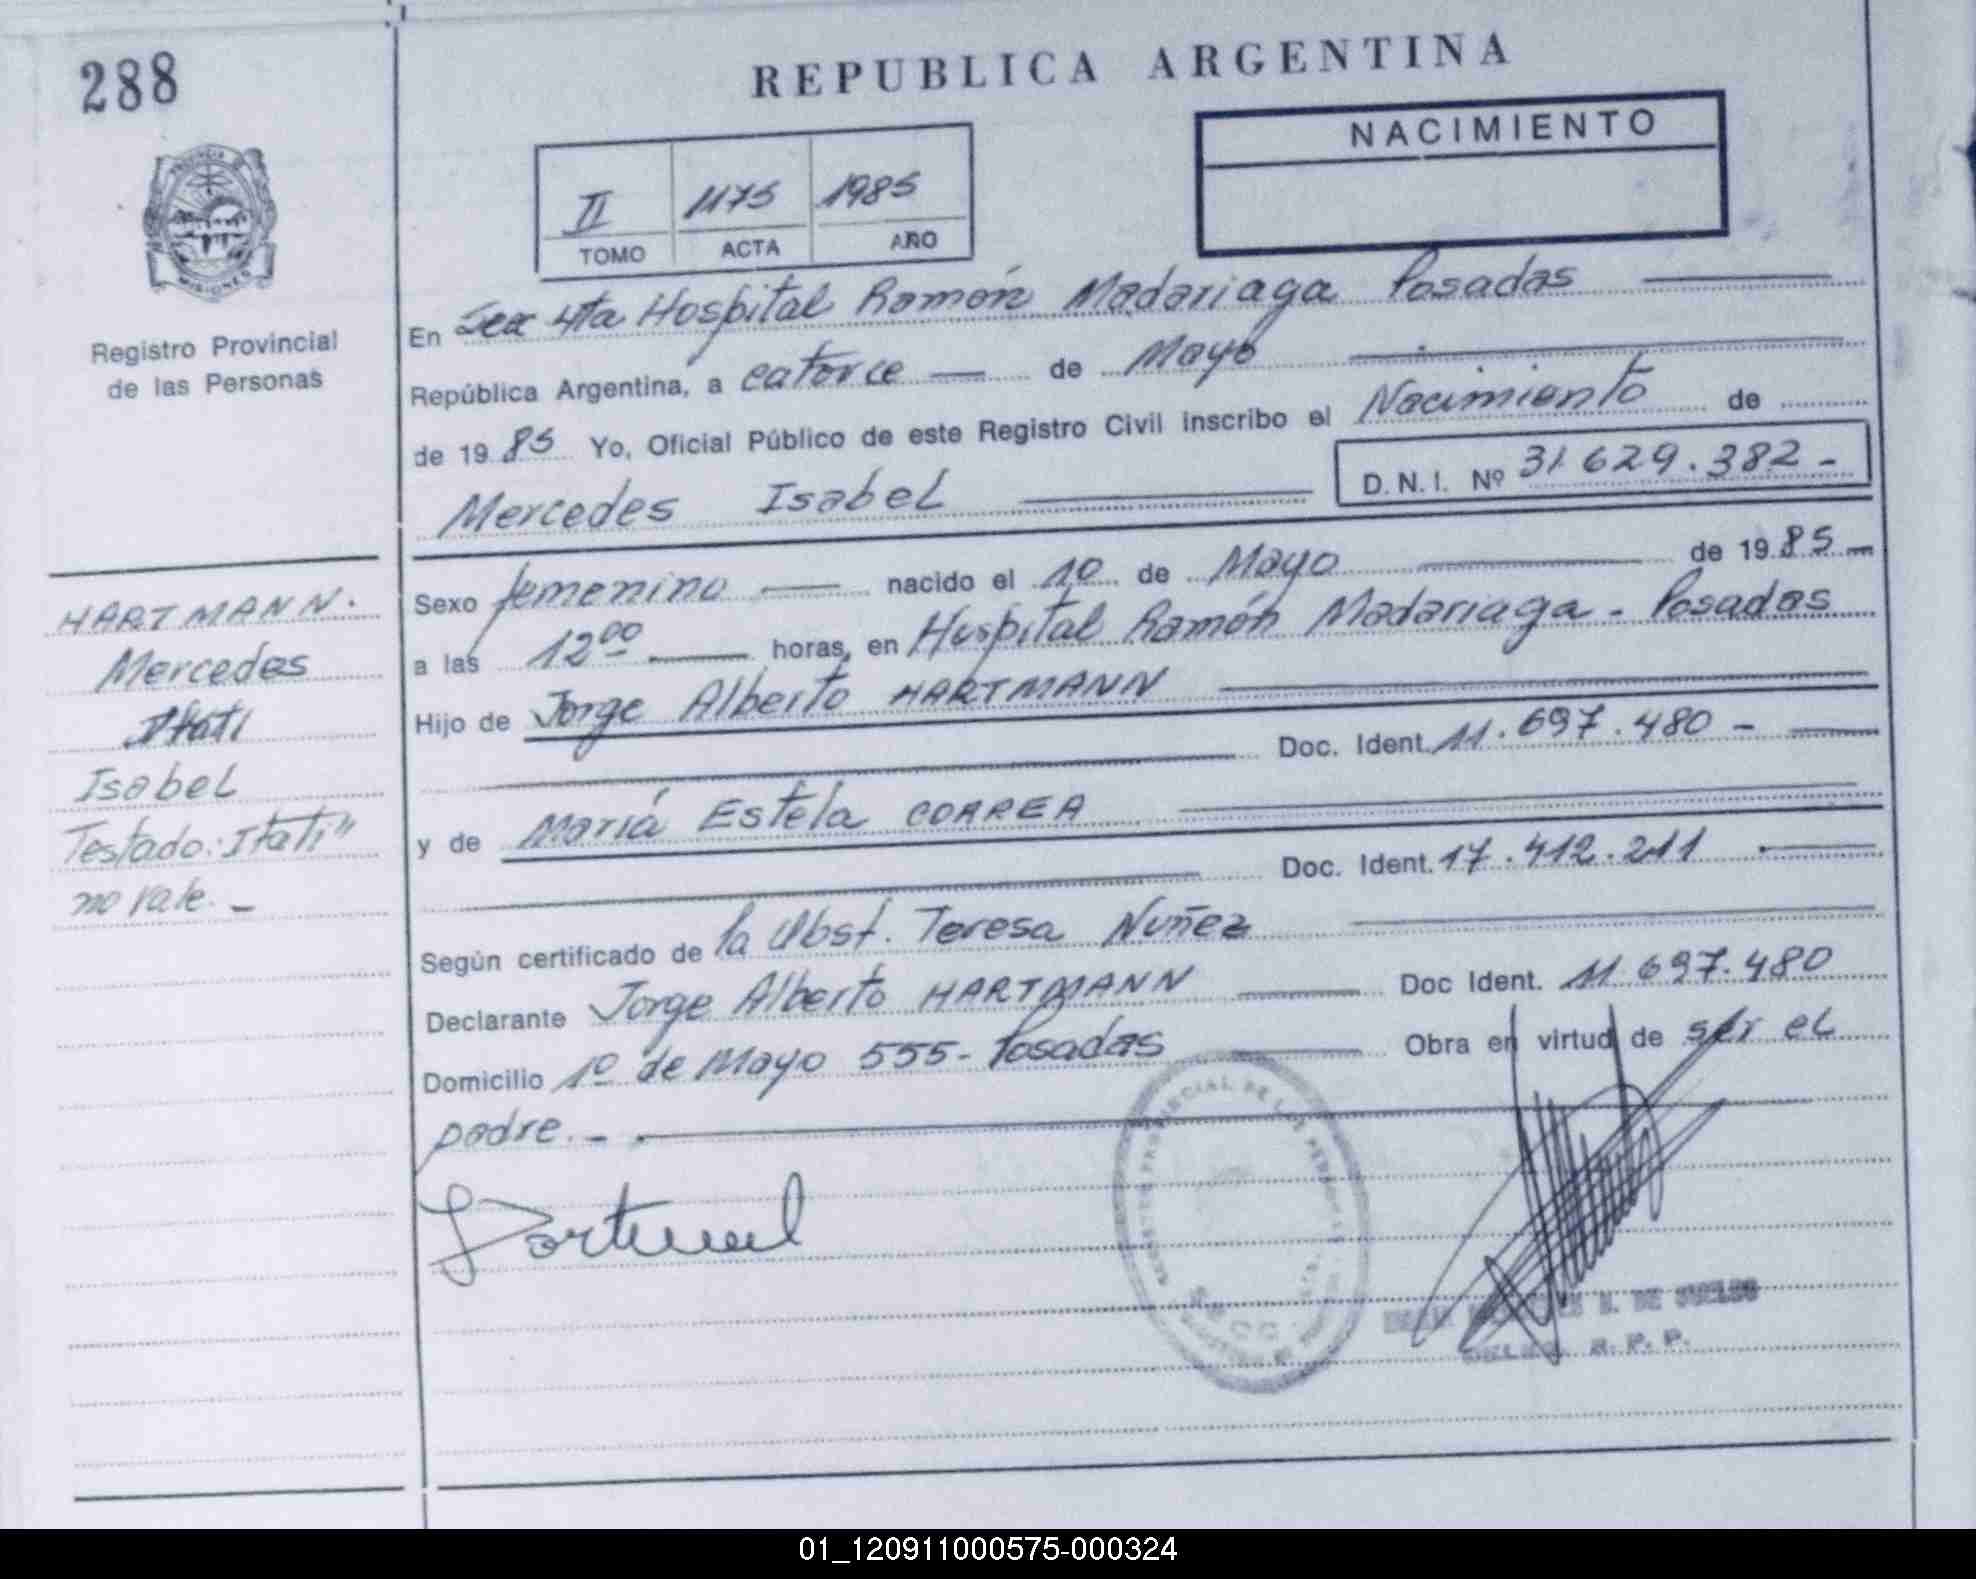 288
REPUBLICA ARGENTINA
NACIMIENTO
II 1175 1985
TOMO ACTA AÑO
PROVINCIA DE
MISIONES
Registro Provincial
de las Personas
En Sec 4ta Hospital Ramón Madariaga Posadas
República Argentina, a catorce de Mayo
de 1985 Yo, Oficial Público de este Registro Civil inscribo el Nacimiento de
D.N.I. Nº 31.629.382-
Mercedes Isabel
HARTMANN.
Mercedes
Itatí
Isabel
Testado: Itatí"
no vale.-
Sexo femenino nacido el 10 de Mayo de 1985
a las 12⁰⁰ horas, en Hospital Ramón Madariaga - Posadas
Hijo de Jorge Alberto HARTMANN
Doc. Ident. 11.697.480-
y de María Estela CORREA
Doc. Ident. 17.412.211
Según certificado de la Obst. Teresa Nuñez
Declarante Jorge Alberto HARTMANN Doc Ident. 11.697.480
Domicilio 1º de Mayo 555- Posadas Obra en virtud de ser el
padre.-
PROVINCIAL DE LAS PERSONAS
DE SUELDO
R. P. P.
01_120911000575-000324